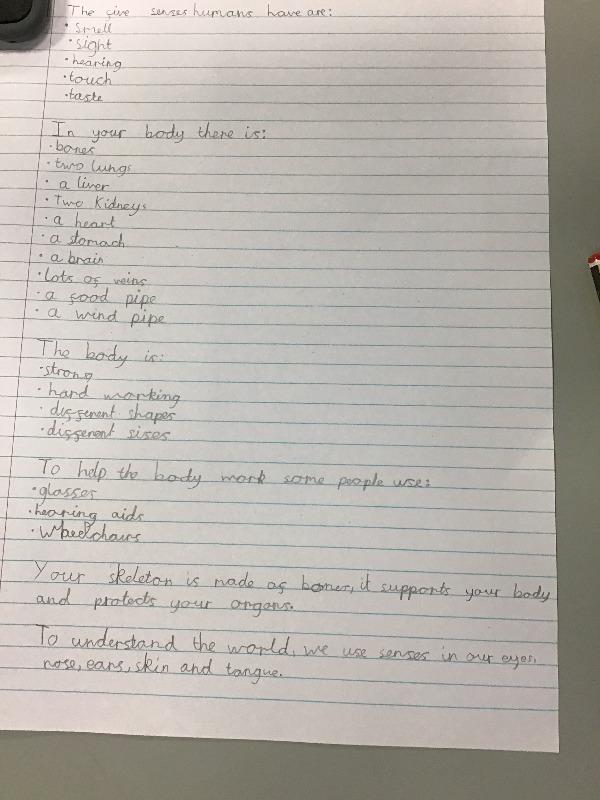 The five senses humans have are:
• smell
• sight
• hearing
• touch
• taste
In your body there is:
• bones
• two lungs
• a liver
• Two Kidneys
• a heart
• a stomach
• a brain
• lots of veins
• a food pipe
• a wind pipe
The body is:
• strong
• hard working
• different shapes
• different sises
To help the body work some people use:
• glasses
• hearing aids
• Wheelchairs
Your skeleton is made of bones, it supports your body
and protects your organs.
To understand the world, we use senses in our eyes,
nose, ears, skin and tongue.